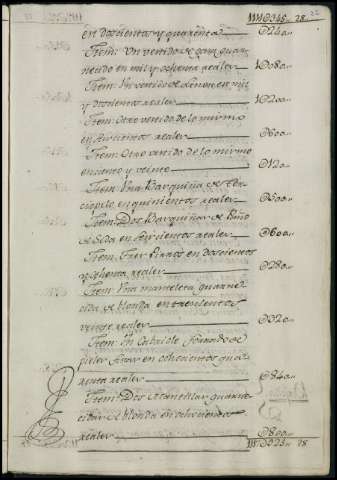 en doscientos y quarenta 240
Ittem: Un vestido de gasa guar
necido en mil y ochenta reales 1080
Ittem: Un vestido de en mil
y doscientos reales 1200
Ittem: Otro vestido de lo mismo
en seiscientos reales 600
Ittem: Otro vestido de lo mismo
en ciento y veinte 120
Ittem: Una Basquiña de ter
ciopelo en quinientos reales 500
Ittem: Dos Basquiñas de
de seda en seiscientos reales 600
Ittem: Tres en doscientos
y ochenta reales 280
Ittem: Una manteleta guarne
cida de blonda en trescientos
veinte reales 320
Ittem: Un Cabriole forrado de
pieles en ochocientos qua
renta reales 840
Ittem: Dos guarne
cidas de blonda en ochocientos
reales 800